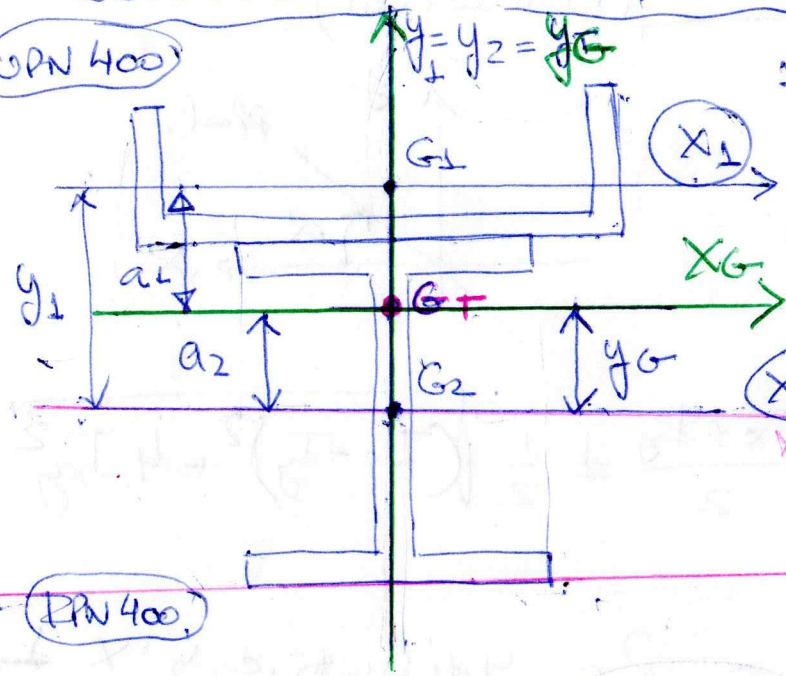 UPN 400
y₁ = y₂ = yG
G1
X1
XG
a1
y1
GT
a2
G2
yG
X
IPN 400